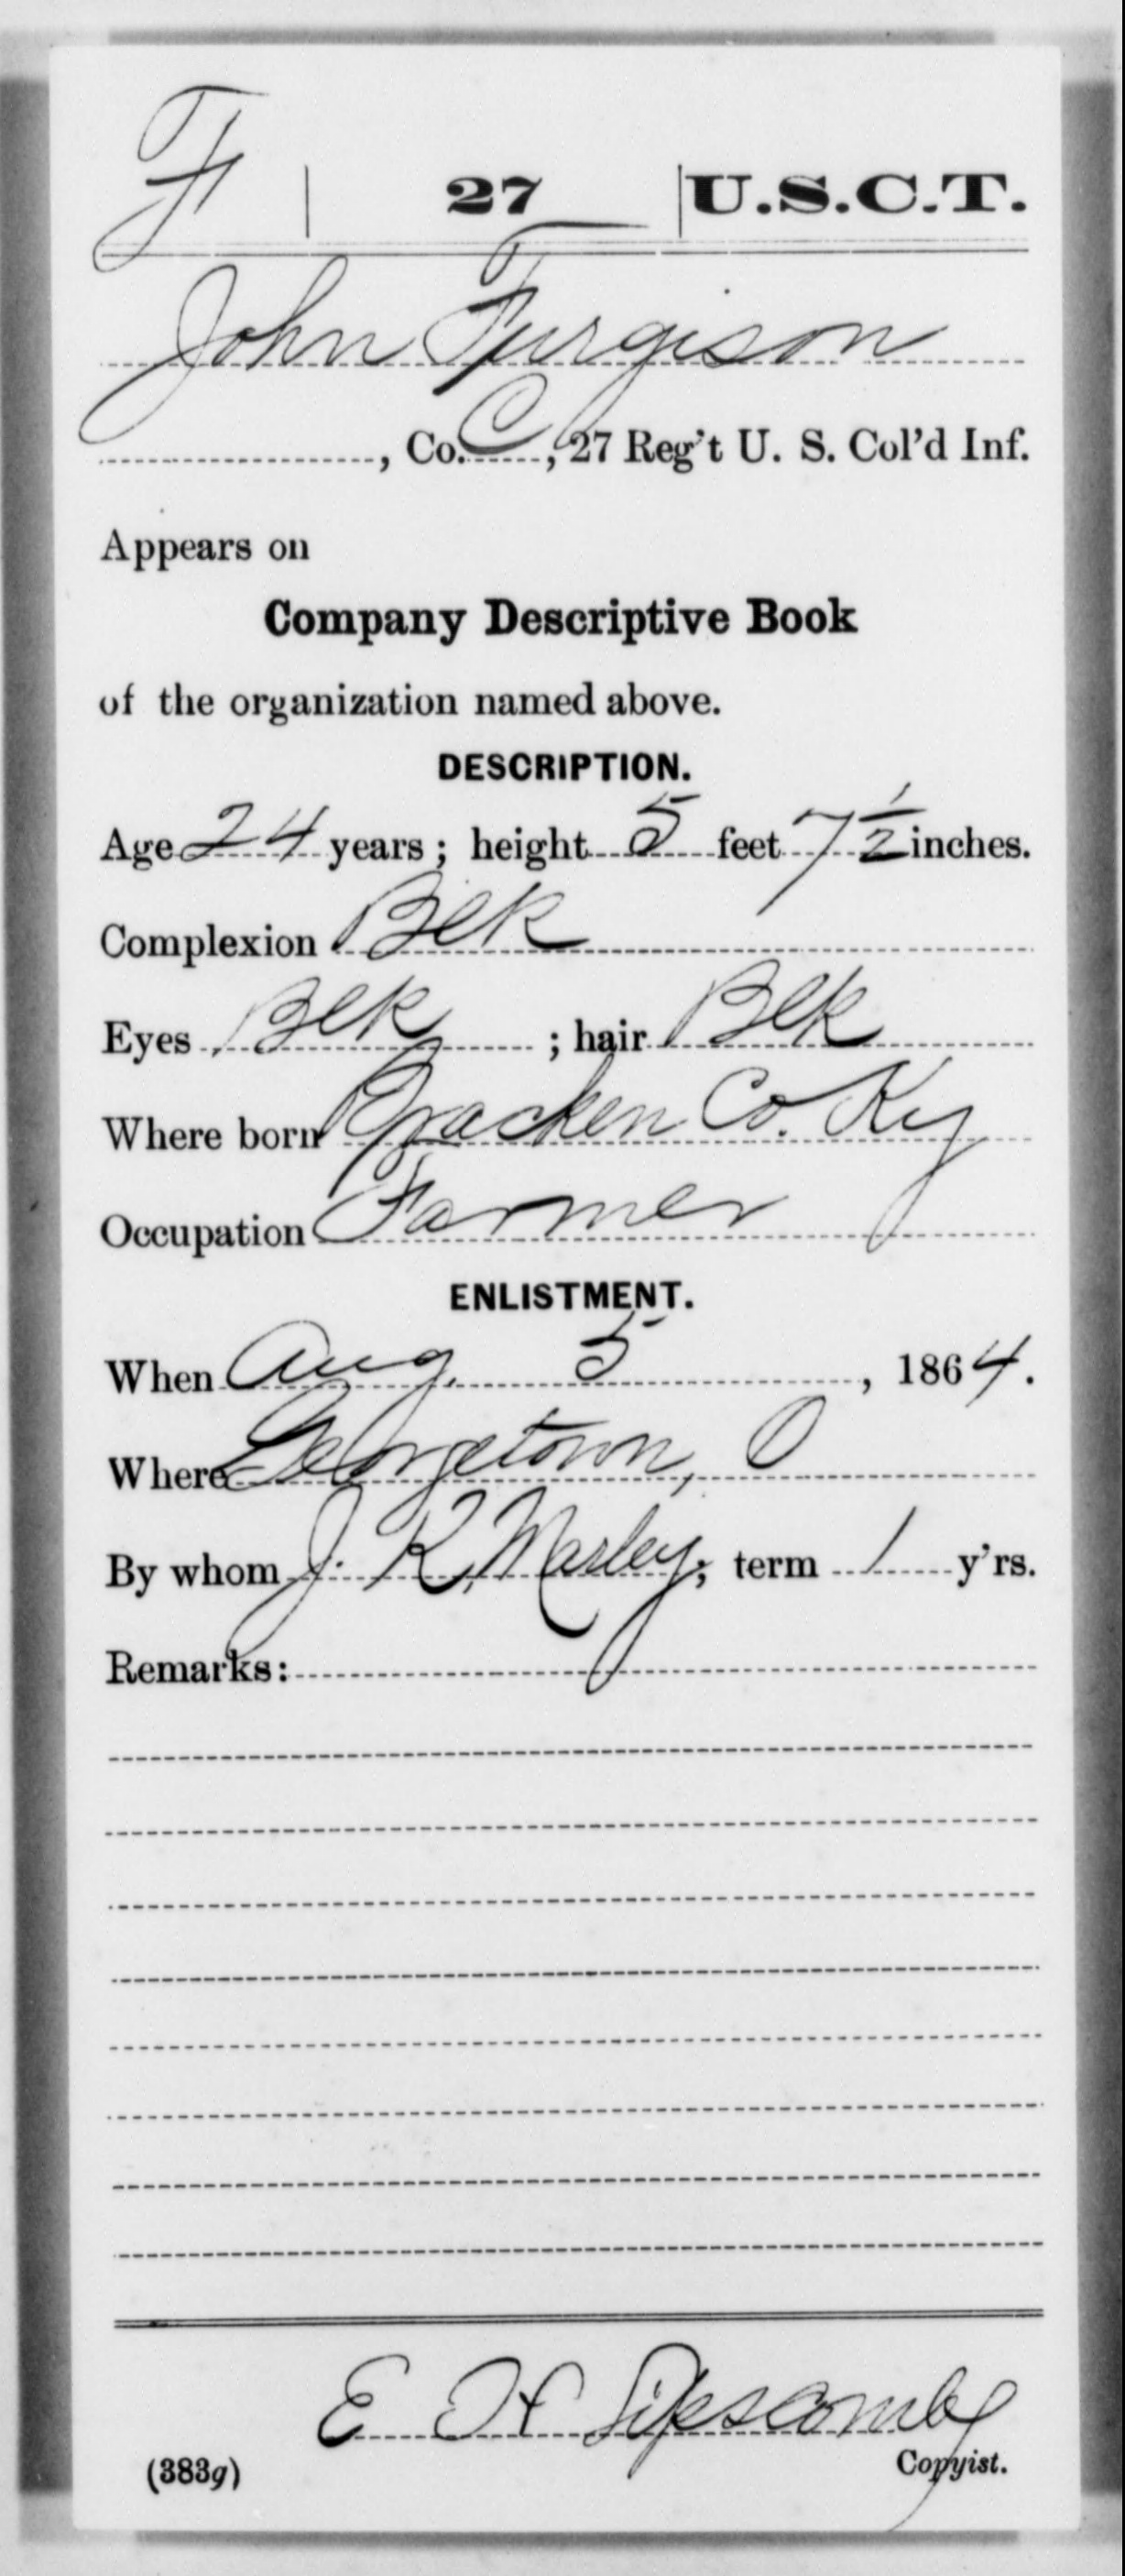 F | 27 | U.S.C.T.
John Furgison
, Co. C, 27 Reg't U. S. Col'd Inf.
Appears on
Company Descriptive Book
of the organization named above.
DESCRIPTION.
Age 24 years; height 5 feet 7 1/2 inches.
Complexion Blk
Eyes Blk; hair Blk
Where born Bracken Co. Ky
Occupation Farmer
ENLISTMENT.
When Aug. 5, 1864.
Where Georgetown, O
By whom J. K. Marley; term 1 y'rs.
Remarks:
E H Lipscomb
Copyist.
(383g)